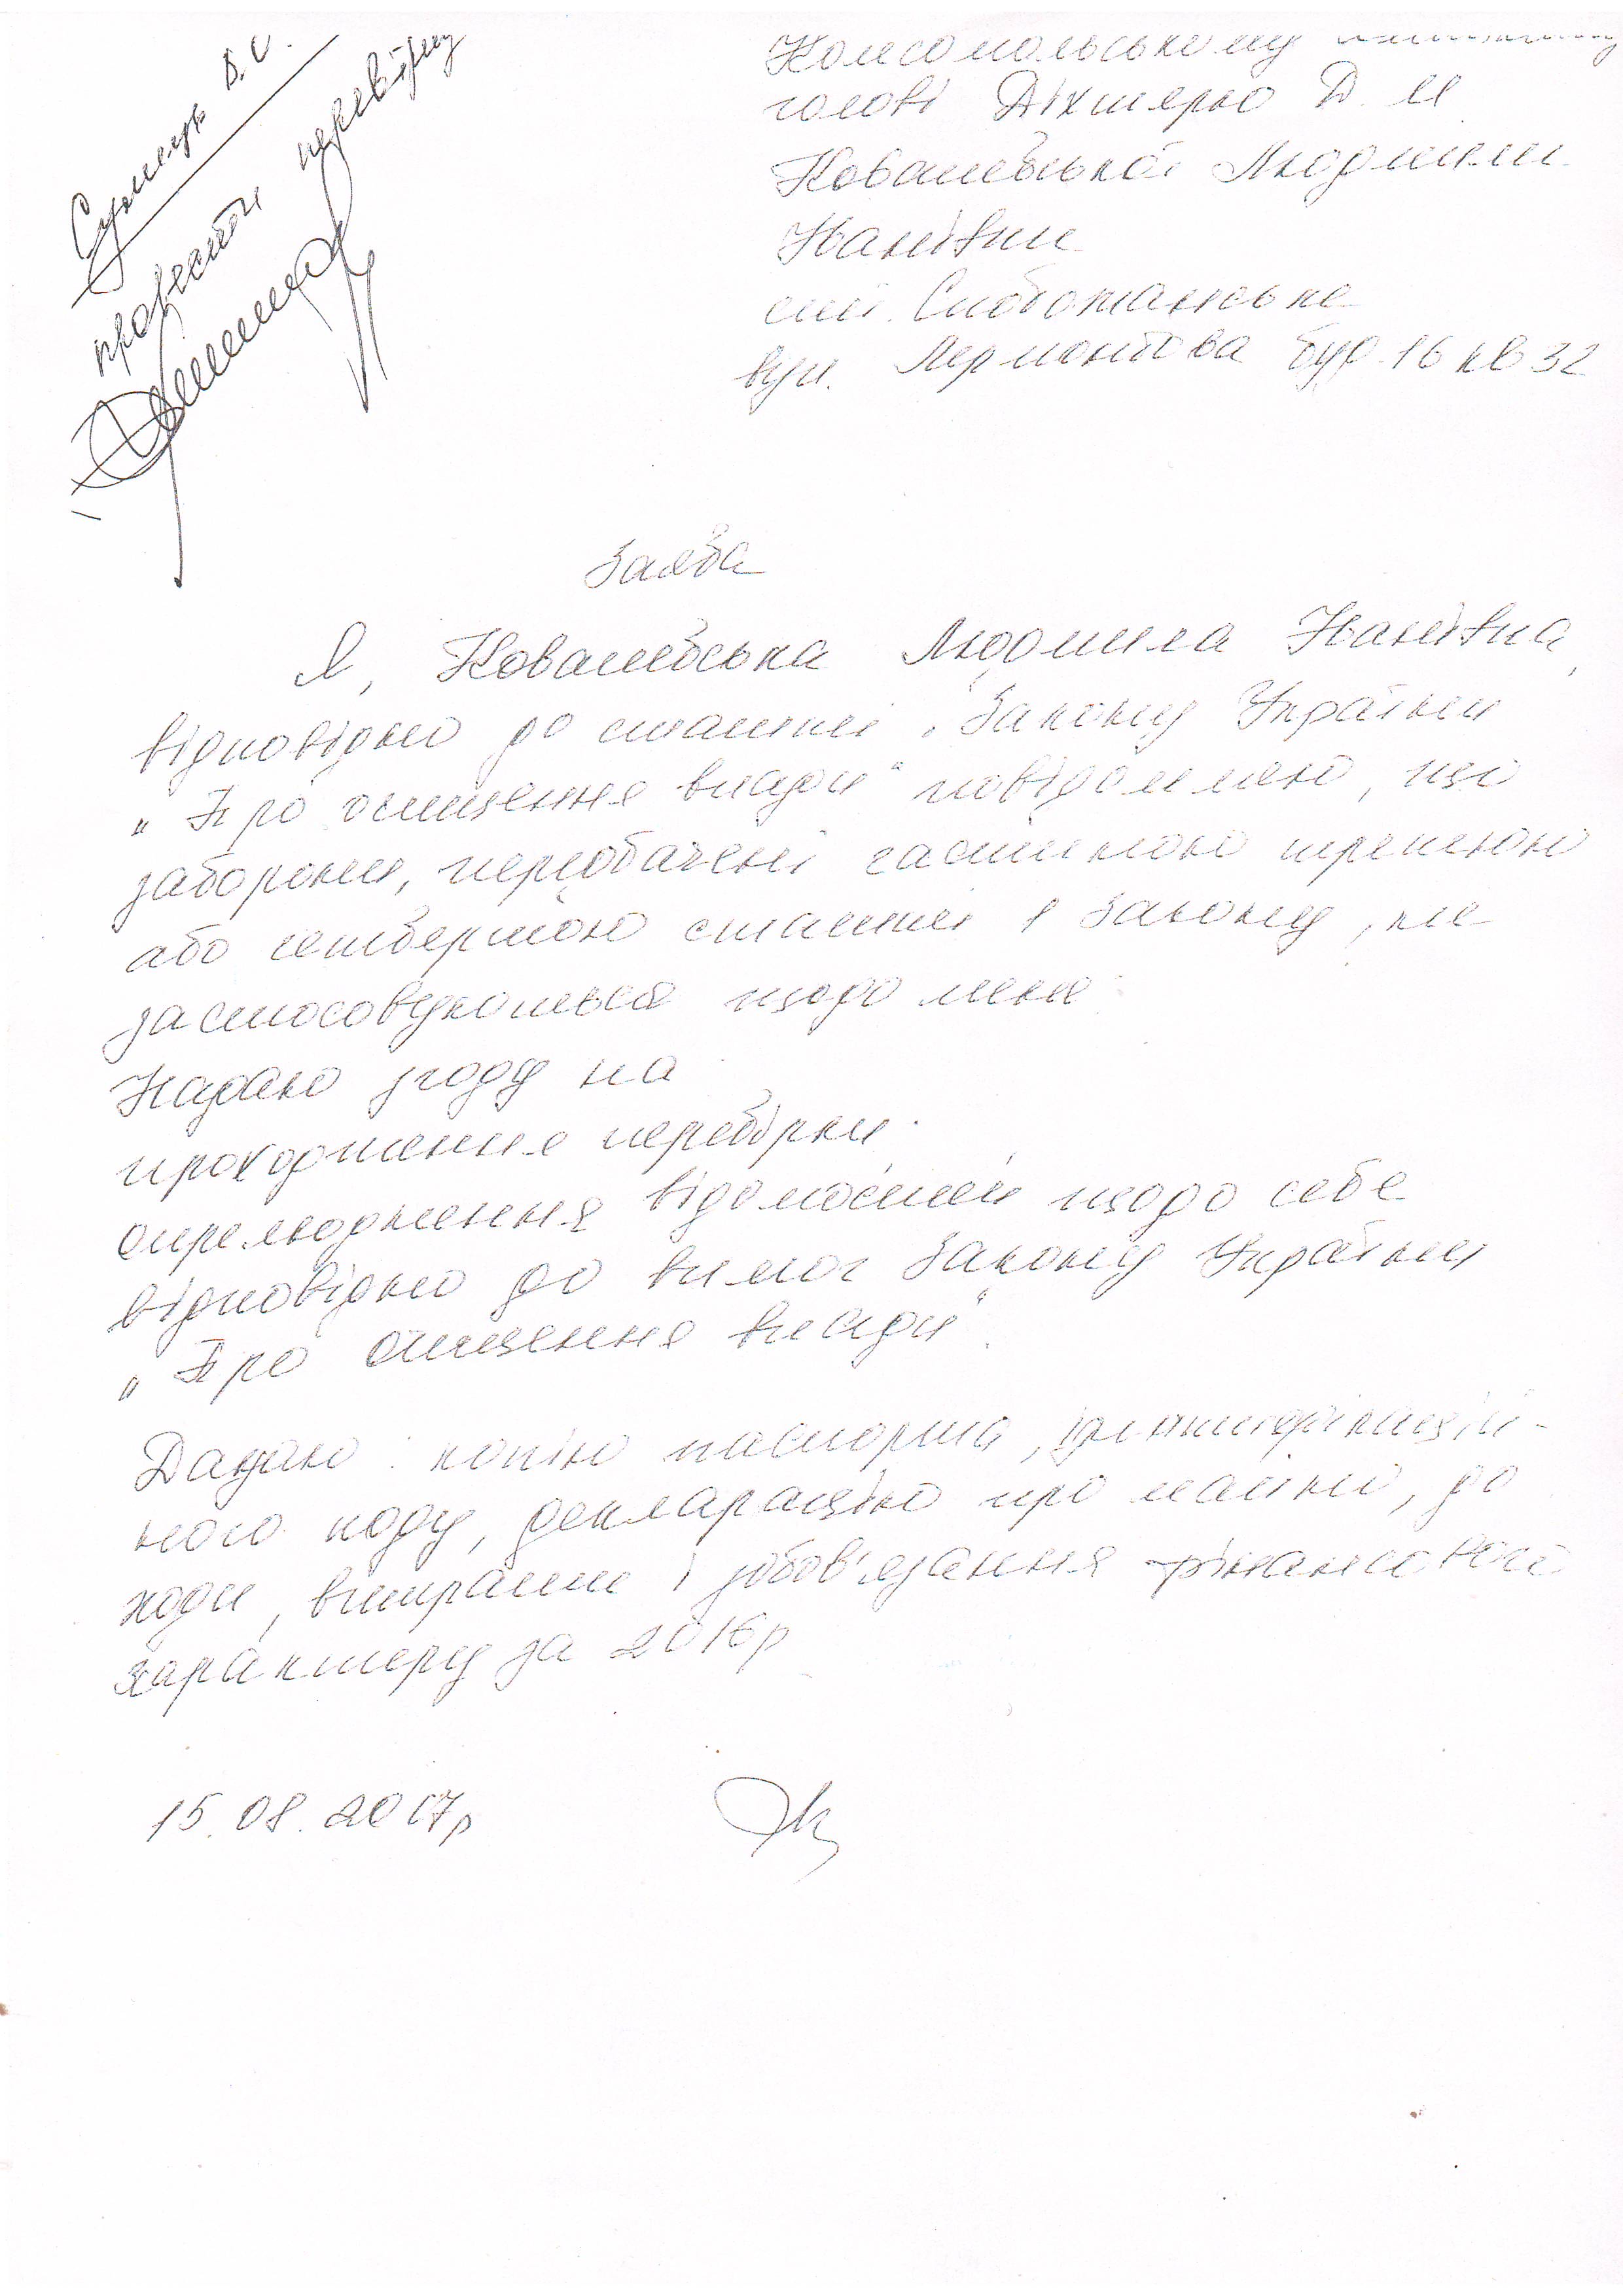 В.С.
провести перевірку
Комсомольському
голові Діхтярю Д. М
Ковалевської Людмили
Іванівни
смт. Слобожанське
вул. Лермонтова буд 16 кв 32
Заява
Я, Ковалевська Людмила Іванівна,
відповідно до статті Закону України
„Про очищення влади" повідомляю, що
заборони, передбачені частиною третьою
або четвертою статті 1 Закону, не
застосовуються щодо мене.
Надаю згоду на
проходження перевірки.
оприлюднення відомостей щодо себе
відповідно до вимог Закону України
„Про очищення влади".
Додаю: копію паспорта, ідентифікацій-
ного коду, декларацію про майно, до
ходи, витрати і зобов'язання фінансового
характеру за 2016р
15.08.2017р